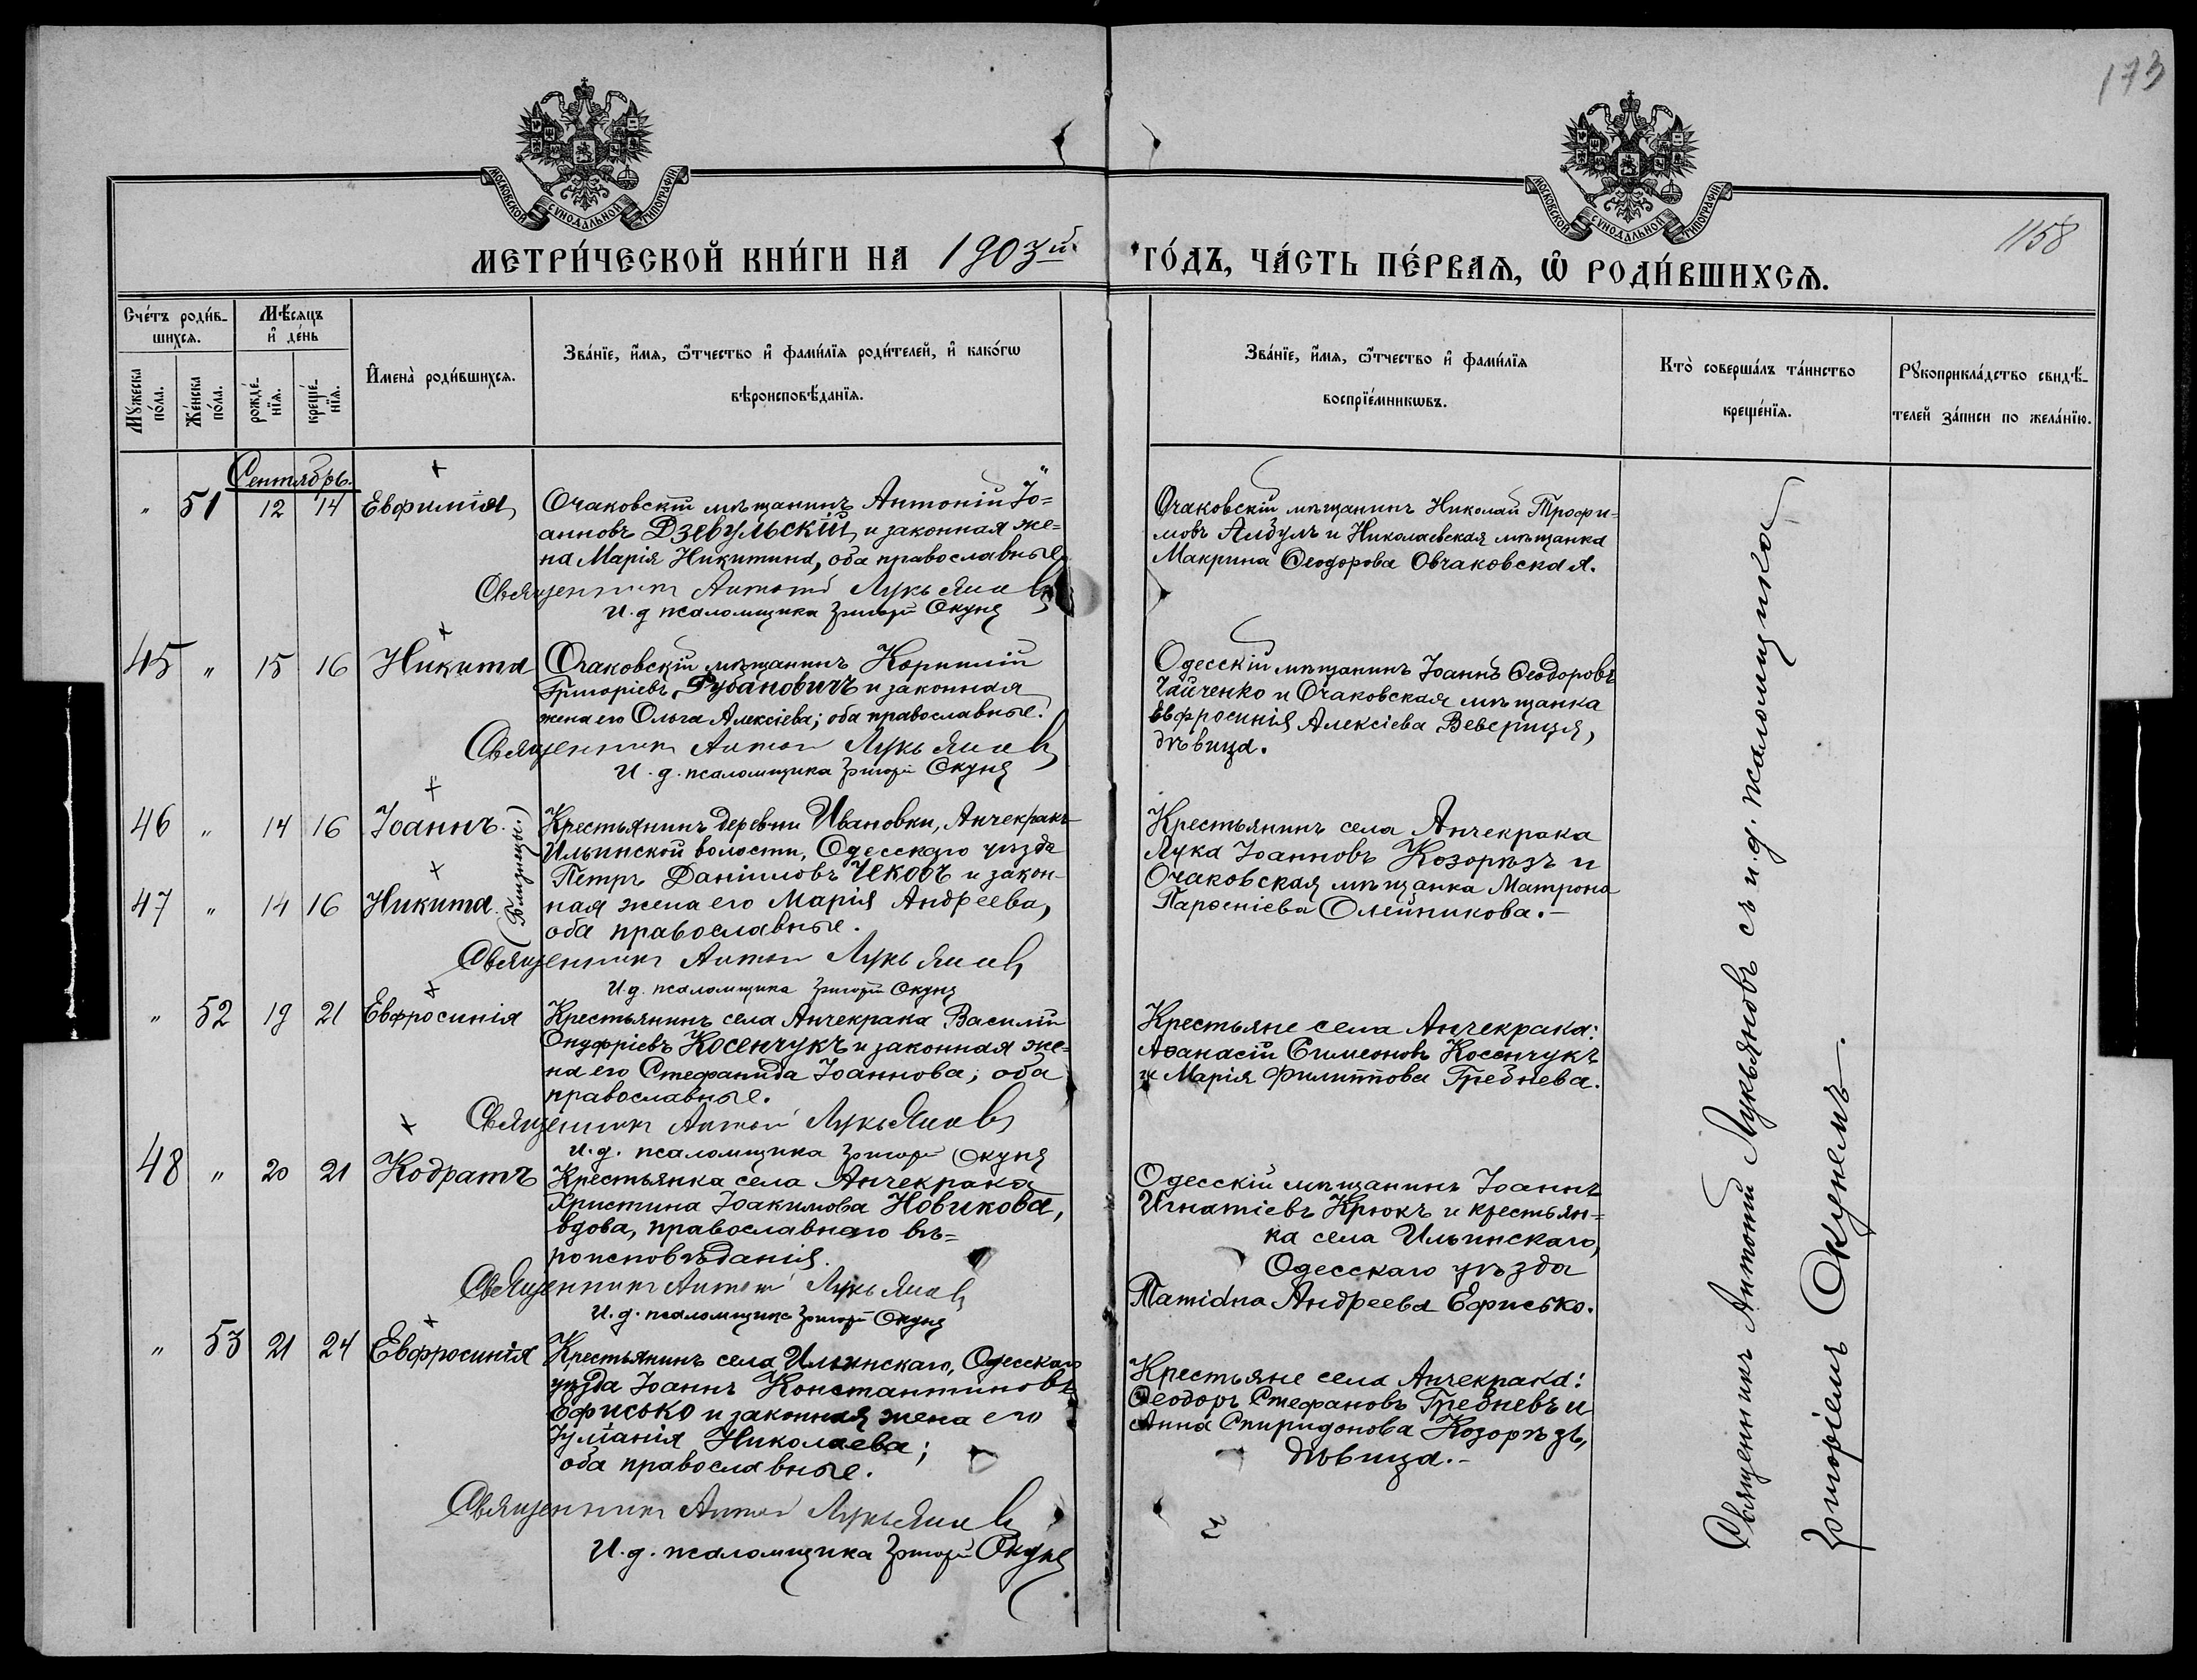 173
1158
МОСКОВСКОЙ СѴНОДАЛЬНОЙ ТИПОГРАФІИ
МОСКОВСКОЙ СѴНОДАЛЬНОЙ ТИПОГРАФІИ
МЕТРИ́ЧЕСКОЙ КНИ́ГИ НА 1903й ГО́ДЪ, ЧА́СТЬ ПЕ́РВАѦ, Ѡ҆ РОДИ́ВШИХСѦ.
Сче́тъ роди́в-
шихсѧ.
Мꙋ́жеска
по́ла.
Же́нска
по́ла.
Мѣ́сяцъ
и҆ де́нь
рожде́-
нїѧ.
креще́-
нїѧ.
И҆мена̀ роди́вшихсѧ.
Зва́нїе, и҆́мѧ, ѻ҆́тчество и҆ фами́лїѧ роди́телей, и҆ како́гѡ
вѣроисповѣ́данїѧ.
Зва́нїе, и҆́мѧ, ѻ҆́тчество и҆ фами́лїѧ
воспрїе́мникѡвъ.
Кто̀ соверша́лъ та́инство
креще́нїѧ.
Рꙋкоприкла́дство свидѣ́-
телей за́писи по жела́нїю.
Сентябрь.
" 51 12 14 Евфимія
Очаковскій мѣщанинъ Антоній Іо=
анновъ Дзевульскій, и законная же=
на Марія Никитина, оба православные.
Священникъ Антоній Лукьяновъ
И. д псаломщика Григорій Окунь
Очаковскій мѣщанинъ Николай Трофи-
мовъ и Николаевская мѣщанка
Макрина Ѳеодорова Овчаковская.
45 " 15 16 Никита
Очаковскій мѣщанинъ Корнилій
Григоріевъ Рубановичъ и законная
жена его Ольга Алексіева; оба православные.
Священникъ Антоній Лукьяновъ
И. д. псаломщика Григорій Окунь
Одесскій мѣщанинъ Іоаннъ Ѳеодоровъ
Чайченко и Очаковская мѣщанка
Евфросинія Алексіева Веверица,
дѣвица.
46 " 14 16 Іоаннъ.
47 " 14 16 Никита.
(Близнецы.)
Крестьянинъ деревни Ивановки, Анчекракъ
Ильинской волости, Одесскаго уѣзда
Петръ Даніиловъ Чековъ и закон-
ная жена его Марія Андреева,
оба православные.
Священникъ Антоній Лукьяновъ
И.д. псаломщика Григорій Окунь
Крестьянинъ села Анчекрака
Лука Іоанновъ Козорѣзъ и
Очаковская мѣщанка Матрона
Парѳеніева Олейникова.-
" 52 19 21 Евфросинія
Крестьянинъ села Анчекрака Василій
Онуфріевъ Косенчукъ и законная же=
на его Стефанида Іоаннова; оба
православные.
Священникъ Антоній Лукьяновъ
И.д. псаломщика Григорій Окунь
Крестьяне села Анчекрака:
Аѳанасій Симеоновъ Косенчукъ
и Марія Филиппова Гребнева.
48 " 20 21 Кодратъ
Крестьянка села Анчекрака
Христина Іоакимова Новикова,
вдова, православнаго вѣ=
роисповѣданія.
Священникъ Антоній Лукьяновъ
И.д. псаломщика Григорій Окунь
Одесскій мѣщанинъ Іоаннъ
Игнатіевъ Крюкъ и крестьян=
ка села Ильинскаго,
Одесскаго уѣзда
Татіана Андреева Ефисько.
" 53 21 24 Евфросинія
Крестьянинъ села Ильинскаго, Одесскаго
уѣзда Іоаннъ Константиновъ
Ефисько и законная жена его
Іуліанія Николаева;
оба православные.
Священникъ Антоній Лукьяновъ
И.д. псаломщика Григорій Окунь
Крестьяне села Анчекрака:
Ѳеодоръ Стефановъ Гребневъ и
Анна Спиридонова Козорѣзъ,
дѣвица.-
Священникъ Антоній Лукьяновъ съ и.д. псаломщика
Григоріемъ Окунемъ.